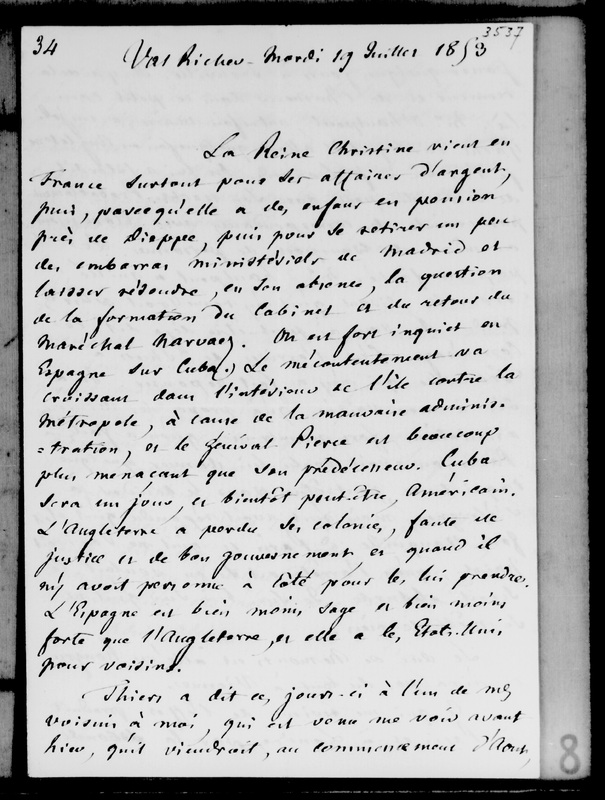 34
3537
Val Richer - Mardi 19 Juillet 1853
La Reine Christine vient en
France surtout pour ses affaires d'argent,
puis, parcequ'elle a des enfans en pension
près de Dieppe, puis pour se retirer un peu
des embarras ministériels de Madrid et
laisser résoudre, en son absence, la question
de la formation du Cabinet et du retour du
Maréchal Narvaez. On est fort inquiet en
Espagne sur Cuba. Le mécontentement va
croissant dans l'intérieur de l'île contre la
Métropole, à cause de la mauvaise adminis-
=tration, et le général Pierce est beaucoup
plus menaçant que son prédécesseur. Cuba
sera un jour, et bientôt peut-être, Américain.
L'Angleterre a perdu ses colonies, faute de
justice et de bon gouvernement et quand il
n'y avoit personne à côté pour les lui prendre.
L'Espagne est bien moins sage et bien moins
forte que l'Angleterre, et elle a les Etats-Unis
pour voisins.
Thiers a dit ces jours-ci à l'un de mes
voisins à moi, qui est venu me voir avant
hier, qu'il viendroit, au commencement d'Août,
8